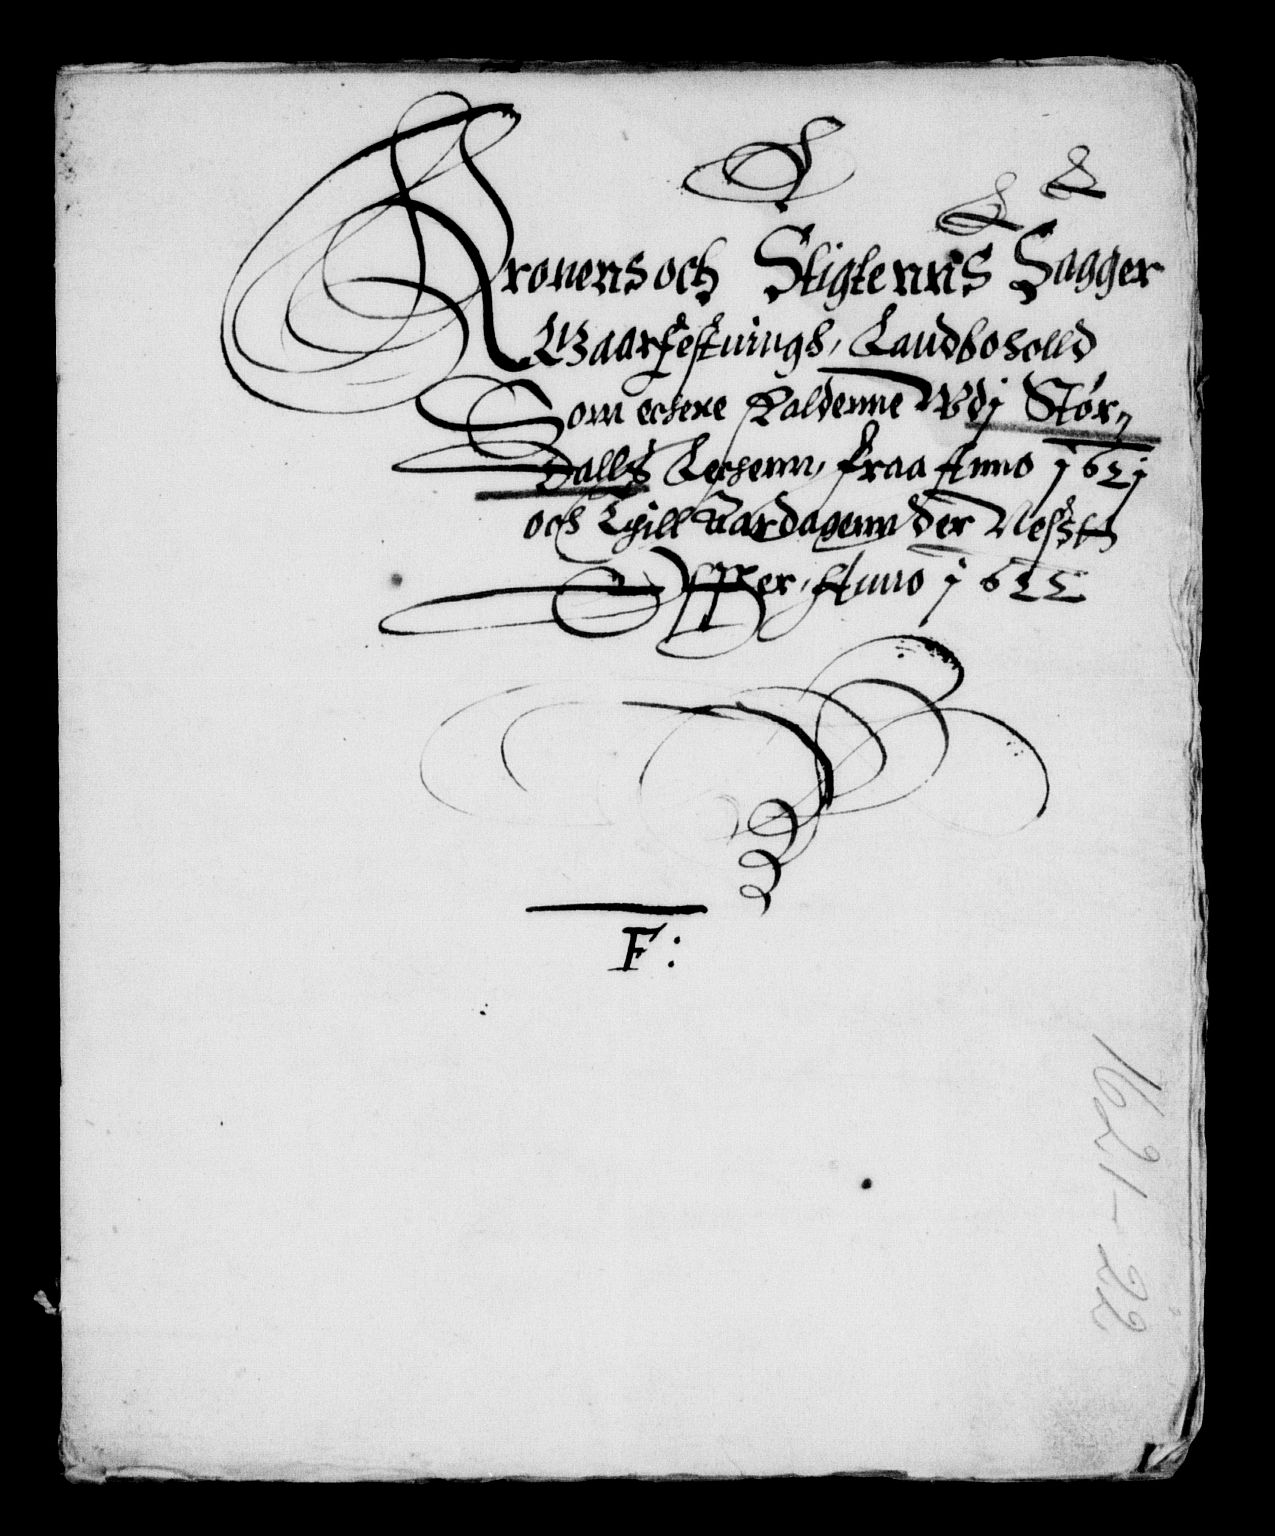 Kronens och Stigtenns Sagger
Gaarfestnings, Landboholld
Som echere Faldenne Vdj Stør„
dalls Lechenn, fraa Anno j62j
och Thill Fardagenn der Nesst
Epther, Anno j622
F:
1621-22